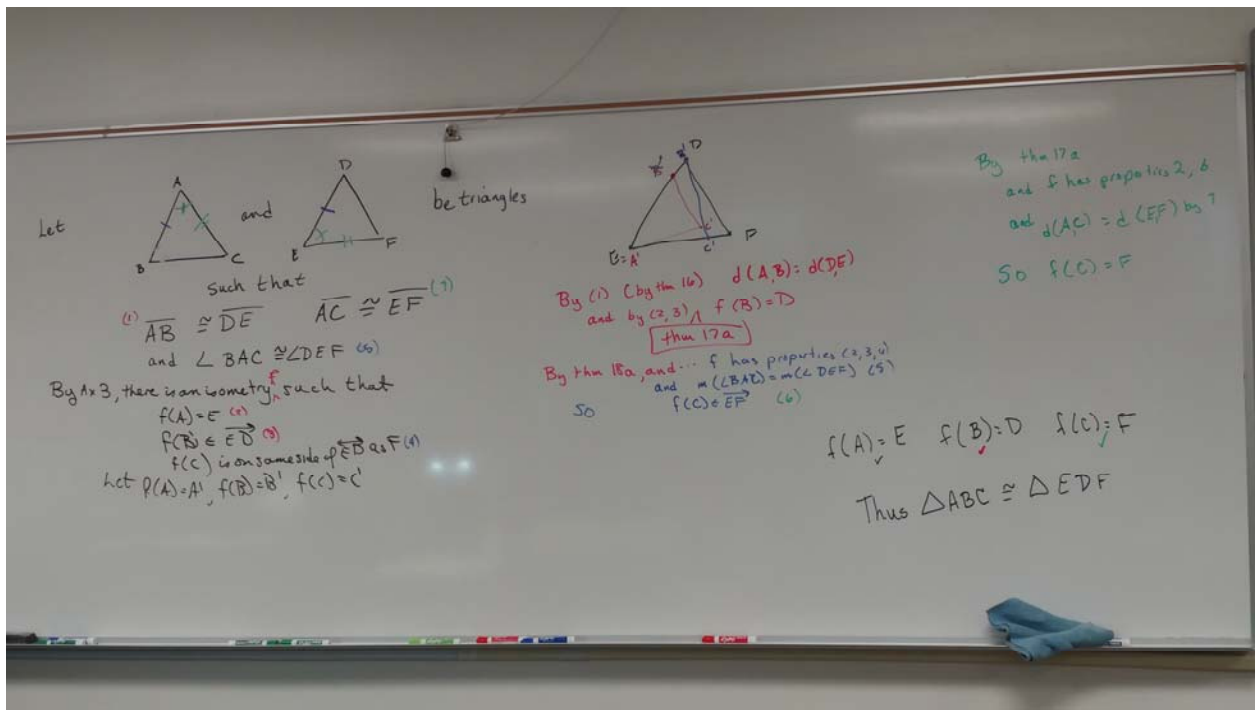 Let
A
B
C
and
D
E
F
be triangles
such that
(1) AB ≅ DE AC ≅ EF (7)
and ∠ BAC ≅ ∠DEF (5)
By Ax 3, there is an isometry f such that
f(A) = E (2)
f(B) ∈ ED (3)
f(C) is on same side of ED as F (4)
Let f(A) = A', f(B) = B', f(C) = C'
B'
B' D
C'
E = A'
C'
F
By (1) (by thm 16) d(A,B) = d(D,E)
and by (2,3) f(B) = D
thm 17a
By thm 18a, and ... f has properties (2,3,4)
and m(∠BAC) = m(∠DEF) (5)
So f(C) ∈ EF (6)
By thm 17a
and f has properties 2, 6
and d(A,C) = d(E,F) by 7
So f(C) = F
f(A) = E f(B) = D f(C) = F
Thus △ABC ≅ △EDF